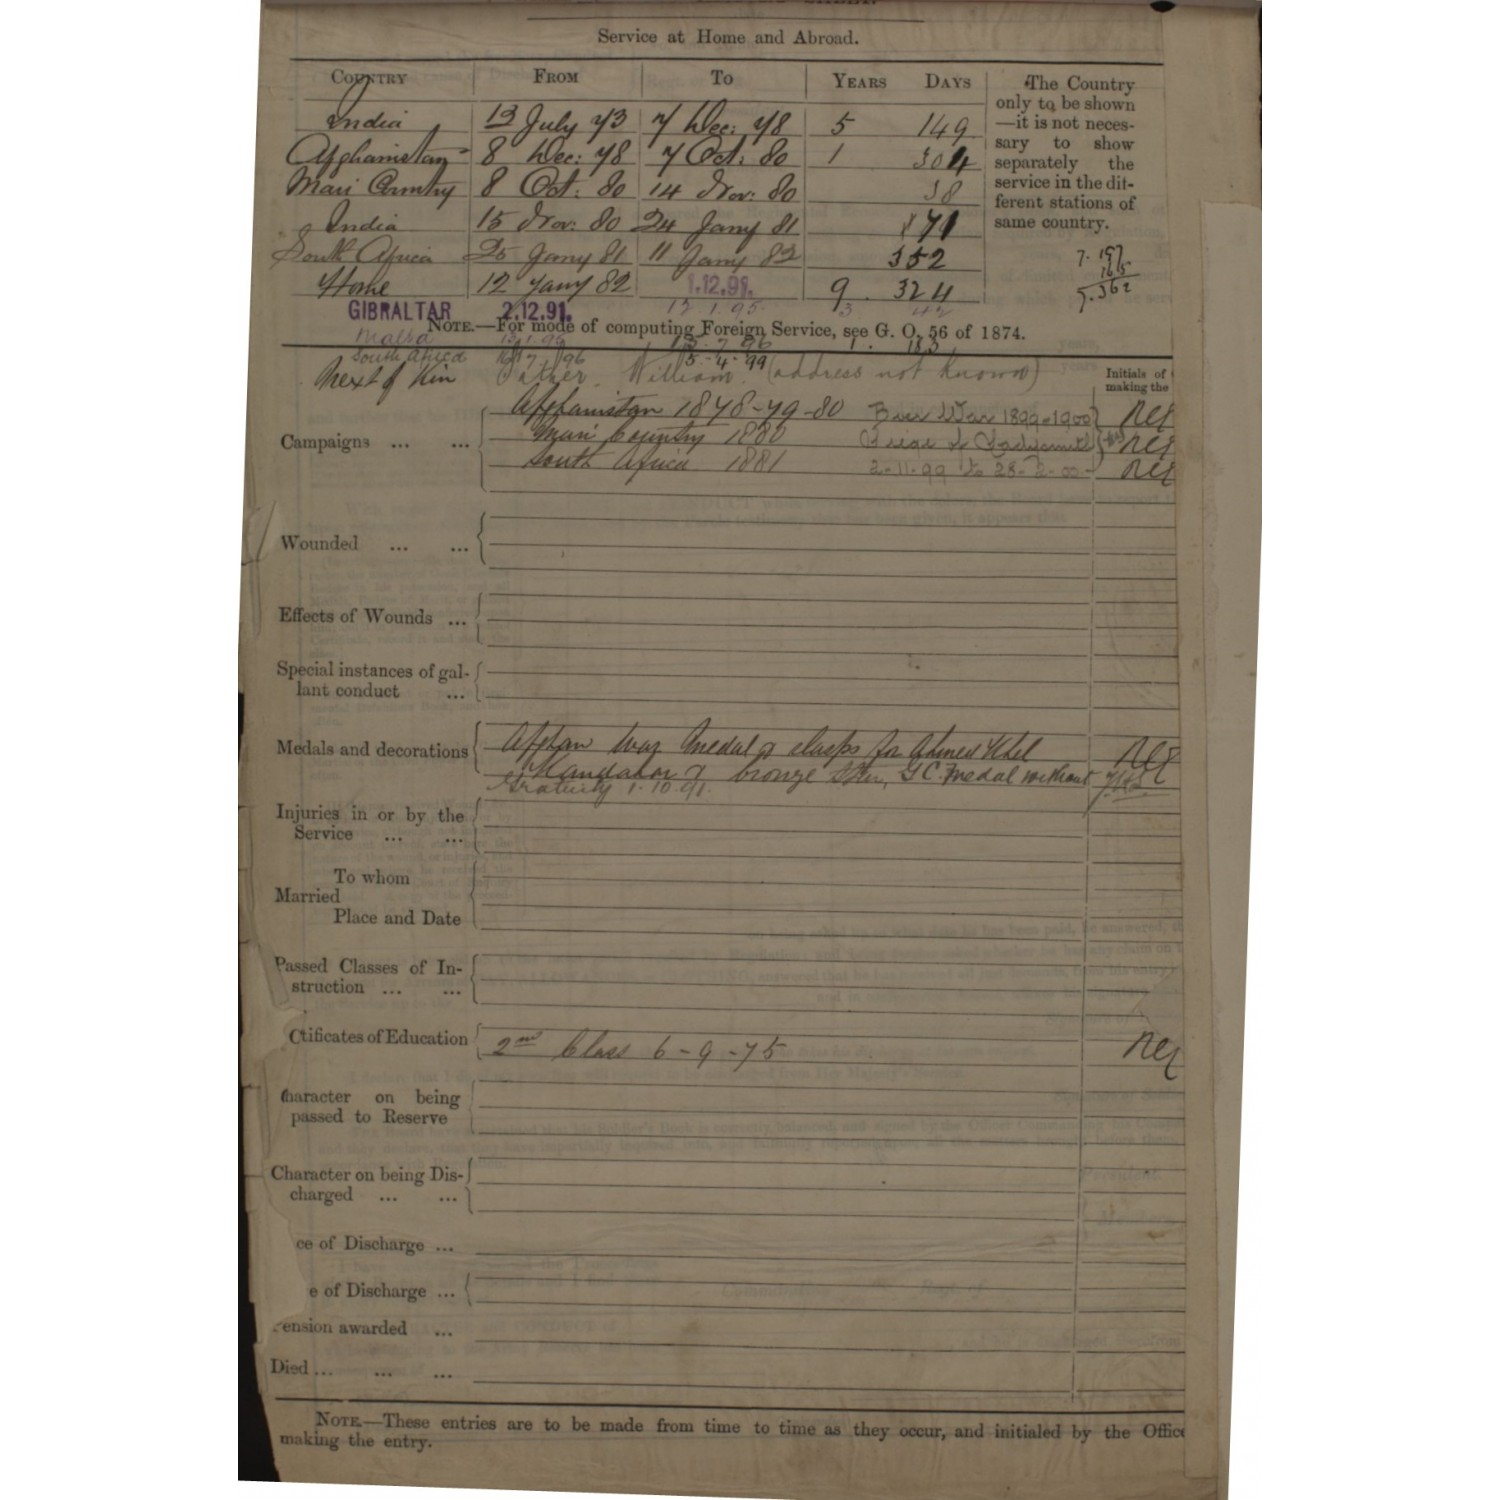 Service at Home and Abroad.
COUNTRY FROM TO YEARS DAYS
India 13 July 73 7 Dec: 78 5 149
Afghanistan 8 Dec: 78 7 Oct: 80 1 304
Mari Country 8 Oct: 80 14 Nov: 80 38
India 15 Nov: 80 24 Jany 81 71
South Africa 25 Jany 81 11 Jany 82 352
Home 12 Jany 82 1.12.91. 9 324
GIBRALTAR 2.12.91. 12.1.95. 3 42
The Country
only to be shown
—it is not neces-
sary to show
separately the
service in the dif-
ferent stations of
same country.
7. 197
165
7.362
NOTE.—For mode of computing Foreign Service, see G. O. 56 of 1874.
Malta 1. 183
South Africa 5-4-99
Next of Kin Father William (address not known)
Initials of
making the
Campaigns ... ...
Afghanistan 1878-79-80 Boer War 1899-1900
Mari Country 1880 Siege of Ladysmith
South Africa 1881 2-11-99 to 28-2-00
Wounded ... ...
Effects of Wounds ...
Special instances of gal-
lant conduct ...
Medals and decorations
Afghan War Medal & clasps for Ahmed Khel
Kandahar & bronze Star, G C. Medal without
Gratuity 1.10.91.
Injuries in or by the
Service ... ...
To whom
Married
Place and Date
Passed Classes of In-
struction ... ...
tificates of Education 2nd Class 6-9-75
haracter on being
passed to Reserve
Character on being Dis-
charged ... ...
ce of Discharge ...
e of Discharge ...
ension awarded ...
Died ... ... ...
NOTE.—These entries are to be made from time to time as they occur, and initialed by the Office
making the entry.